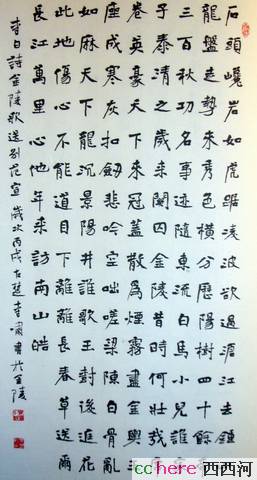 石頭巉岩如虎踞淩波欲過滄江去鍾山
龍盤走勢來秀色橫分歷陽樹四十餘帝
三百秋功名事跡隨東流白馬小兒誰家
子泰清之歲來關囚金陵昔時何壯哉席
卷英豪天下來冠蓋散為煙霧盡金輿玉
座成寒灰扣劍悲吟空咄嗟梁陳白骨亂
如麻天下龍沉景陽井誰歌玉對後庭花
此地傷心不能道目下離離長春草送爾
長江萬里心他年來訪南山皓
李白詩金陵歌送別范宣歲次丙戌 書於金陵
cchere 西西河